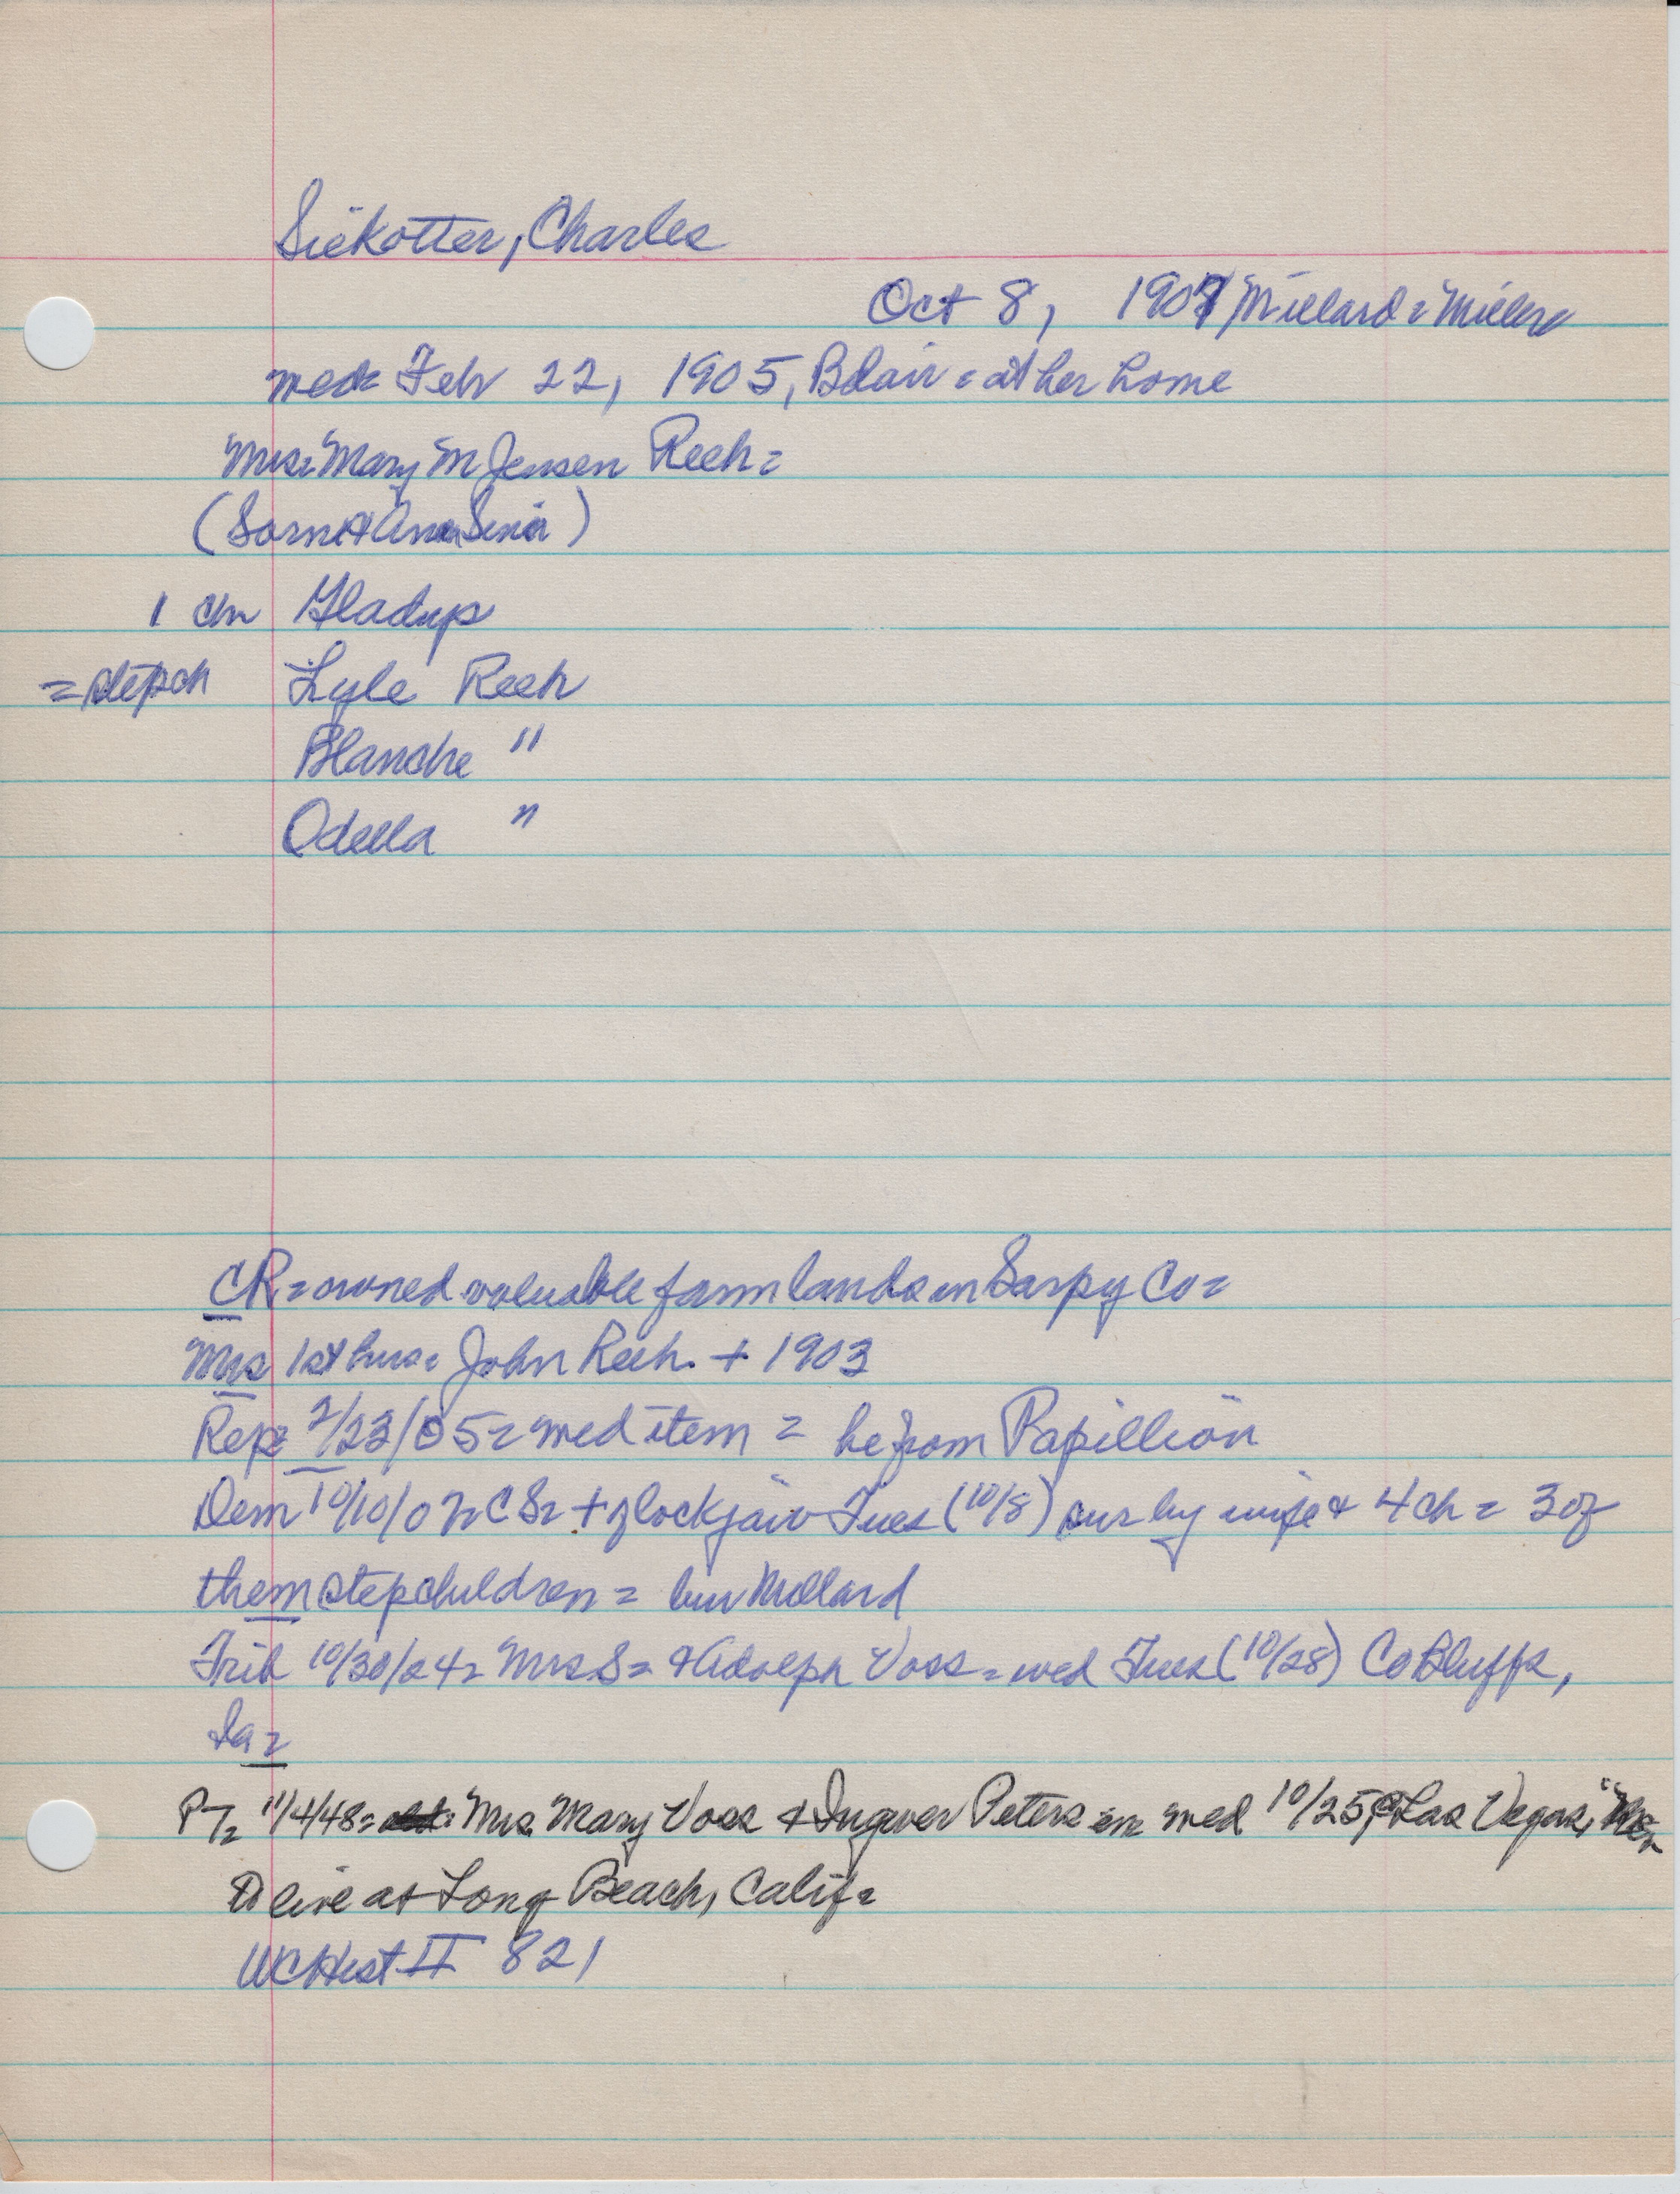 Siekotter, Charles
Oct 8, 1907 Millard =
wed= Feb 22, 1905, Blair = at her home
Mrs= Mary M Jensen Reeh=
(Soren & Ana )
1 ch Gladys
=stepch Lyle Reeh
Blanche "
Odella "
CR= owned valuable farm lands in Sarpy Co=
Mrs 1st hus= John Reeh. + 1903
Rep= 2/23/05= wed item = he from Papillion
Dem 10/10/07= CS= + of lockjaw Tues (10/8) sur by wife & 4 ch = 3 of
them stepchildren = bur Millard
Trib 10/30/24= Mrs S= & Adolph Voss = wed Tues (10/28) Co Bluffs,
Ia=
PT= 11/4/48= Mrs. Mary Voss & Ingwer Peters wed 10/25, Las Vegas,
live at Long Beach, Calif=
WCHist II 821